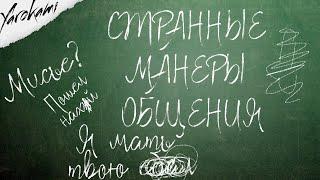 Yarokami
СТРАННЫЕ
МАНЕРЫ
ОБЩЕНИЯ
Мисье?
Пошел
нахуй
Я мать
твою